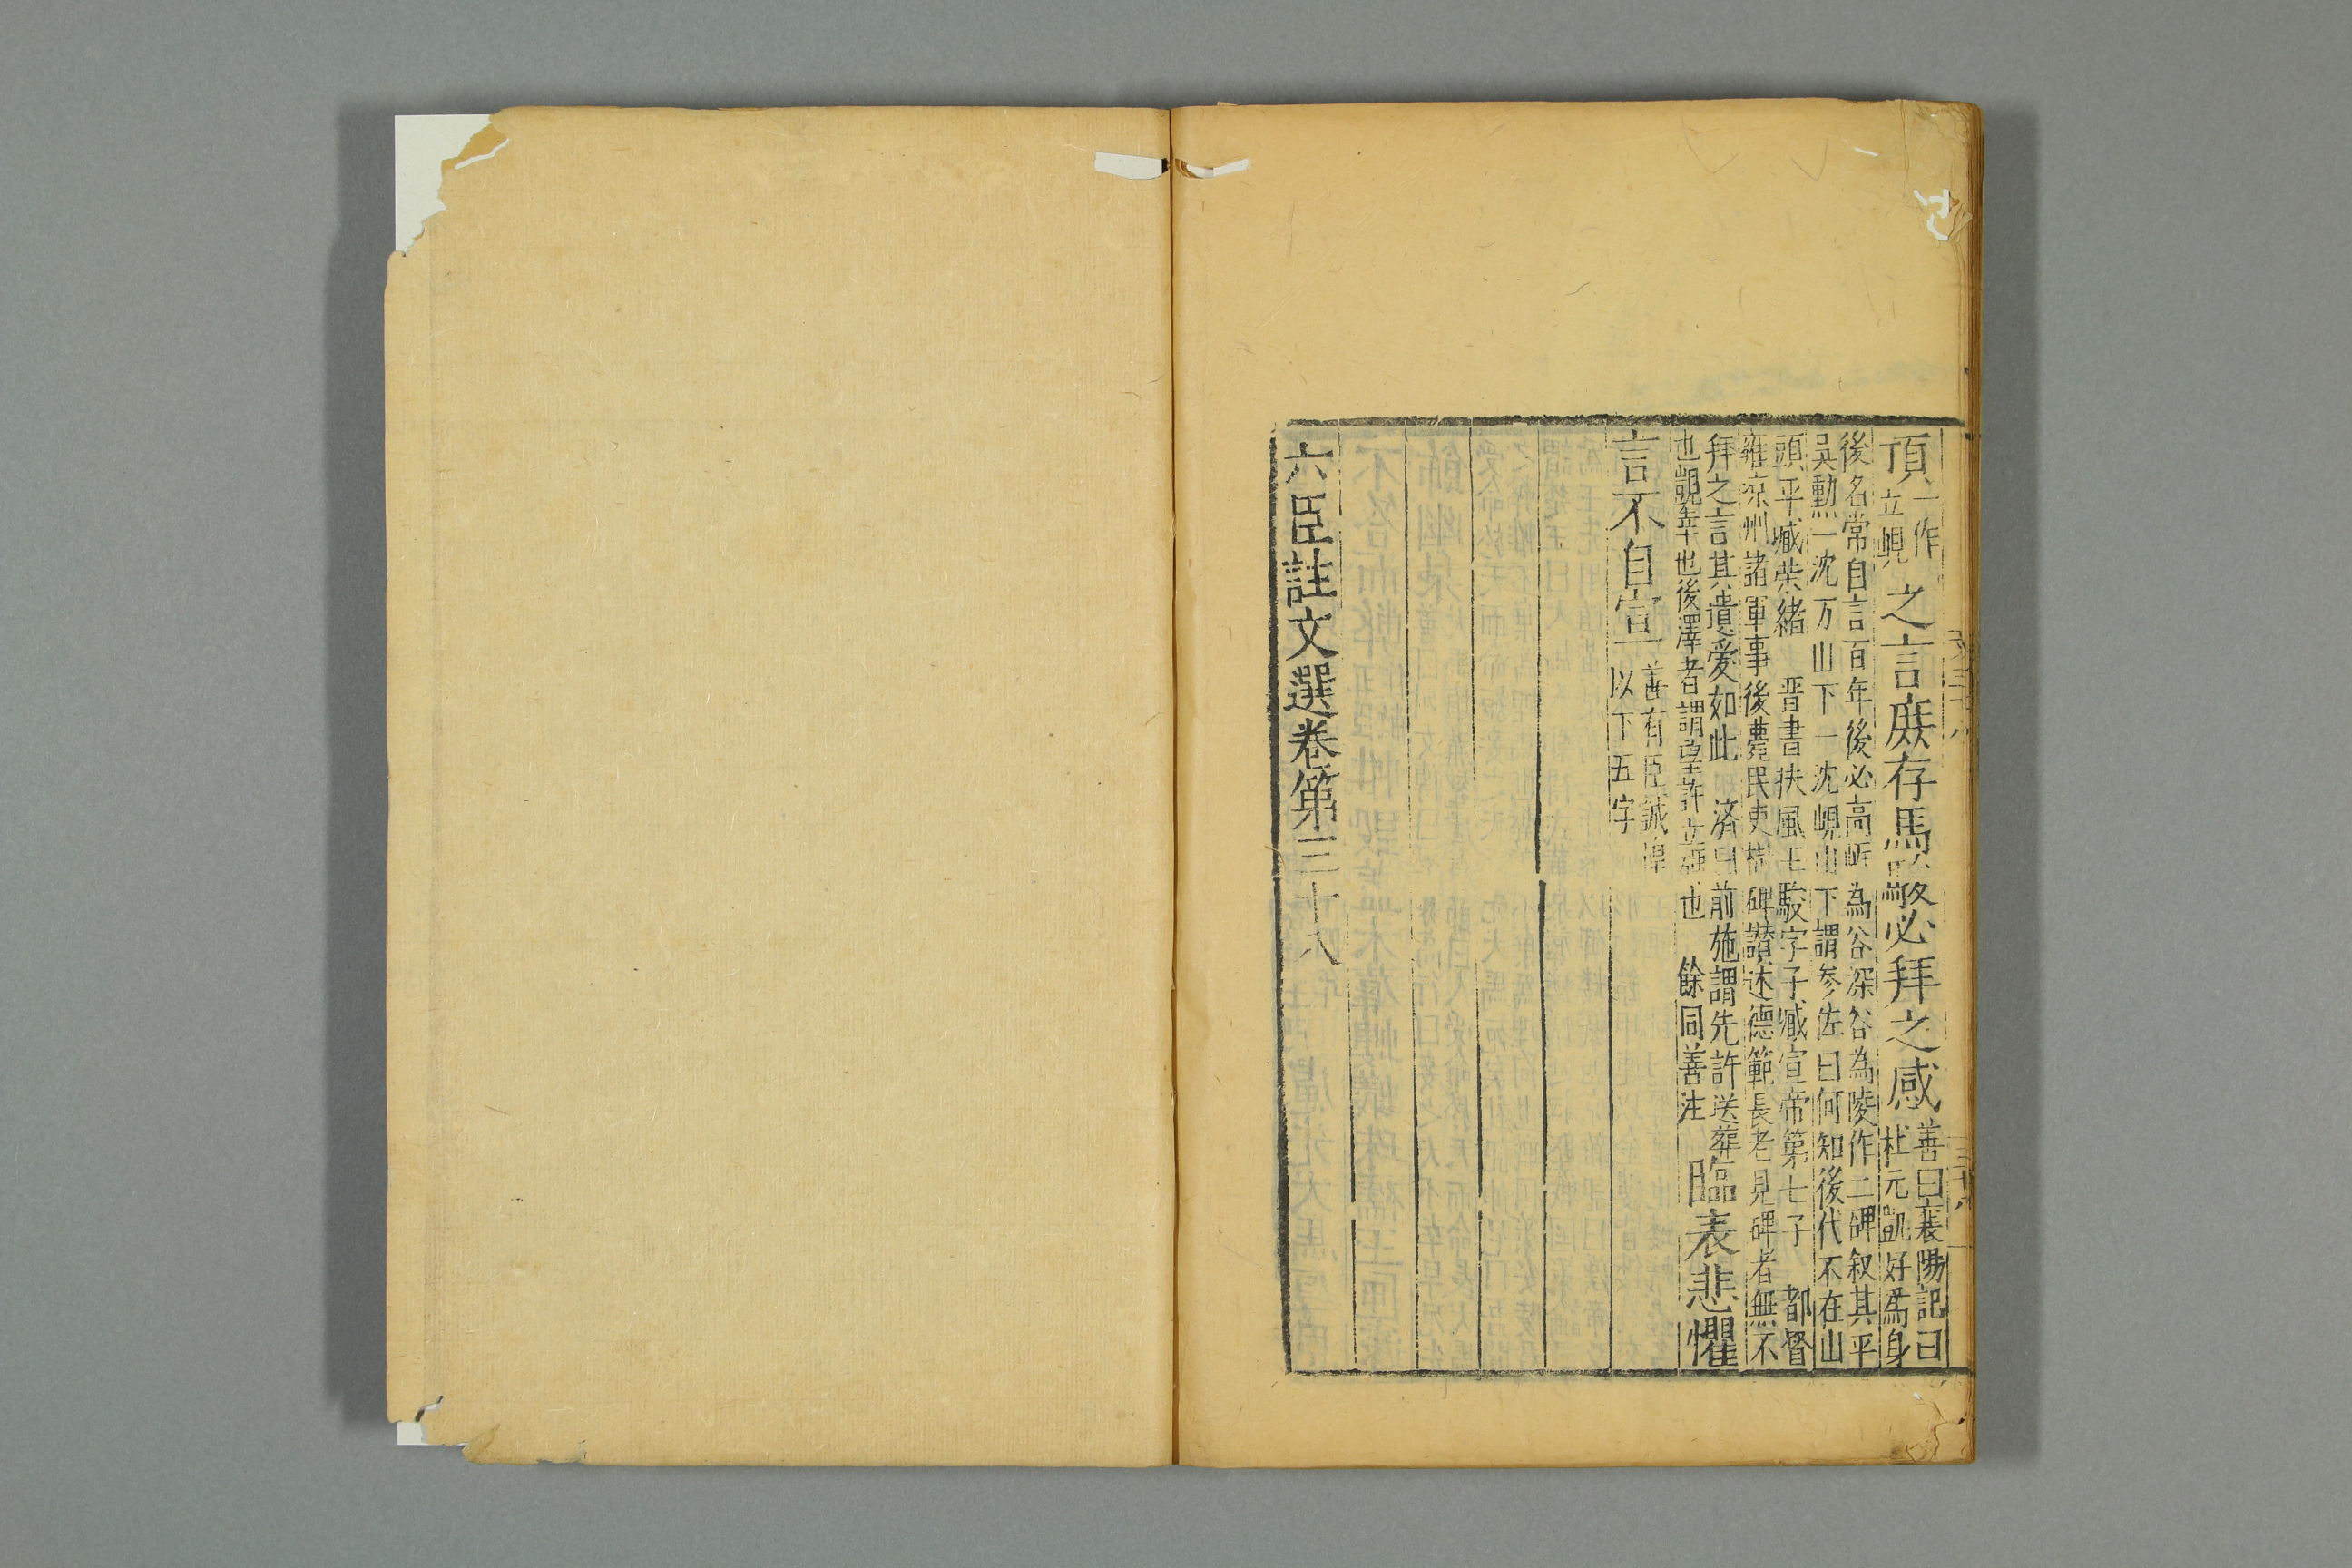 頂一作立峴之言庶存馬駿必拜之感善曰襄陽記曰杜元凱好為身
後名常自言百年後必高岸為谷深谷為陵作二碑叙其平
吳勳一沈万山下一沈峴山下謂參佐曰何知後代不在山
頭乎臧榮緒晉書扶風王駿字子臧宣帝第七子都督
雍涼州諸軍事後薨民吏樹碑讃述德範長老見碑者無不
拜之言其遺愛如此濟曰前施謂先許送葬
也覬幸也後澤者謂望許立碑也餘同善注臨表悲懼
言不自宣善有臣誠惶以下五字
六臣註文選卷第三十八